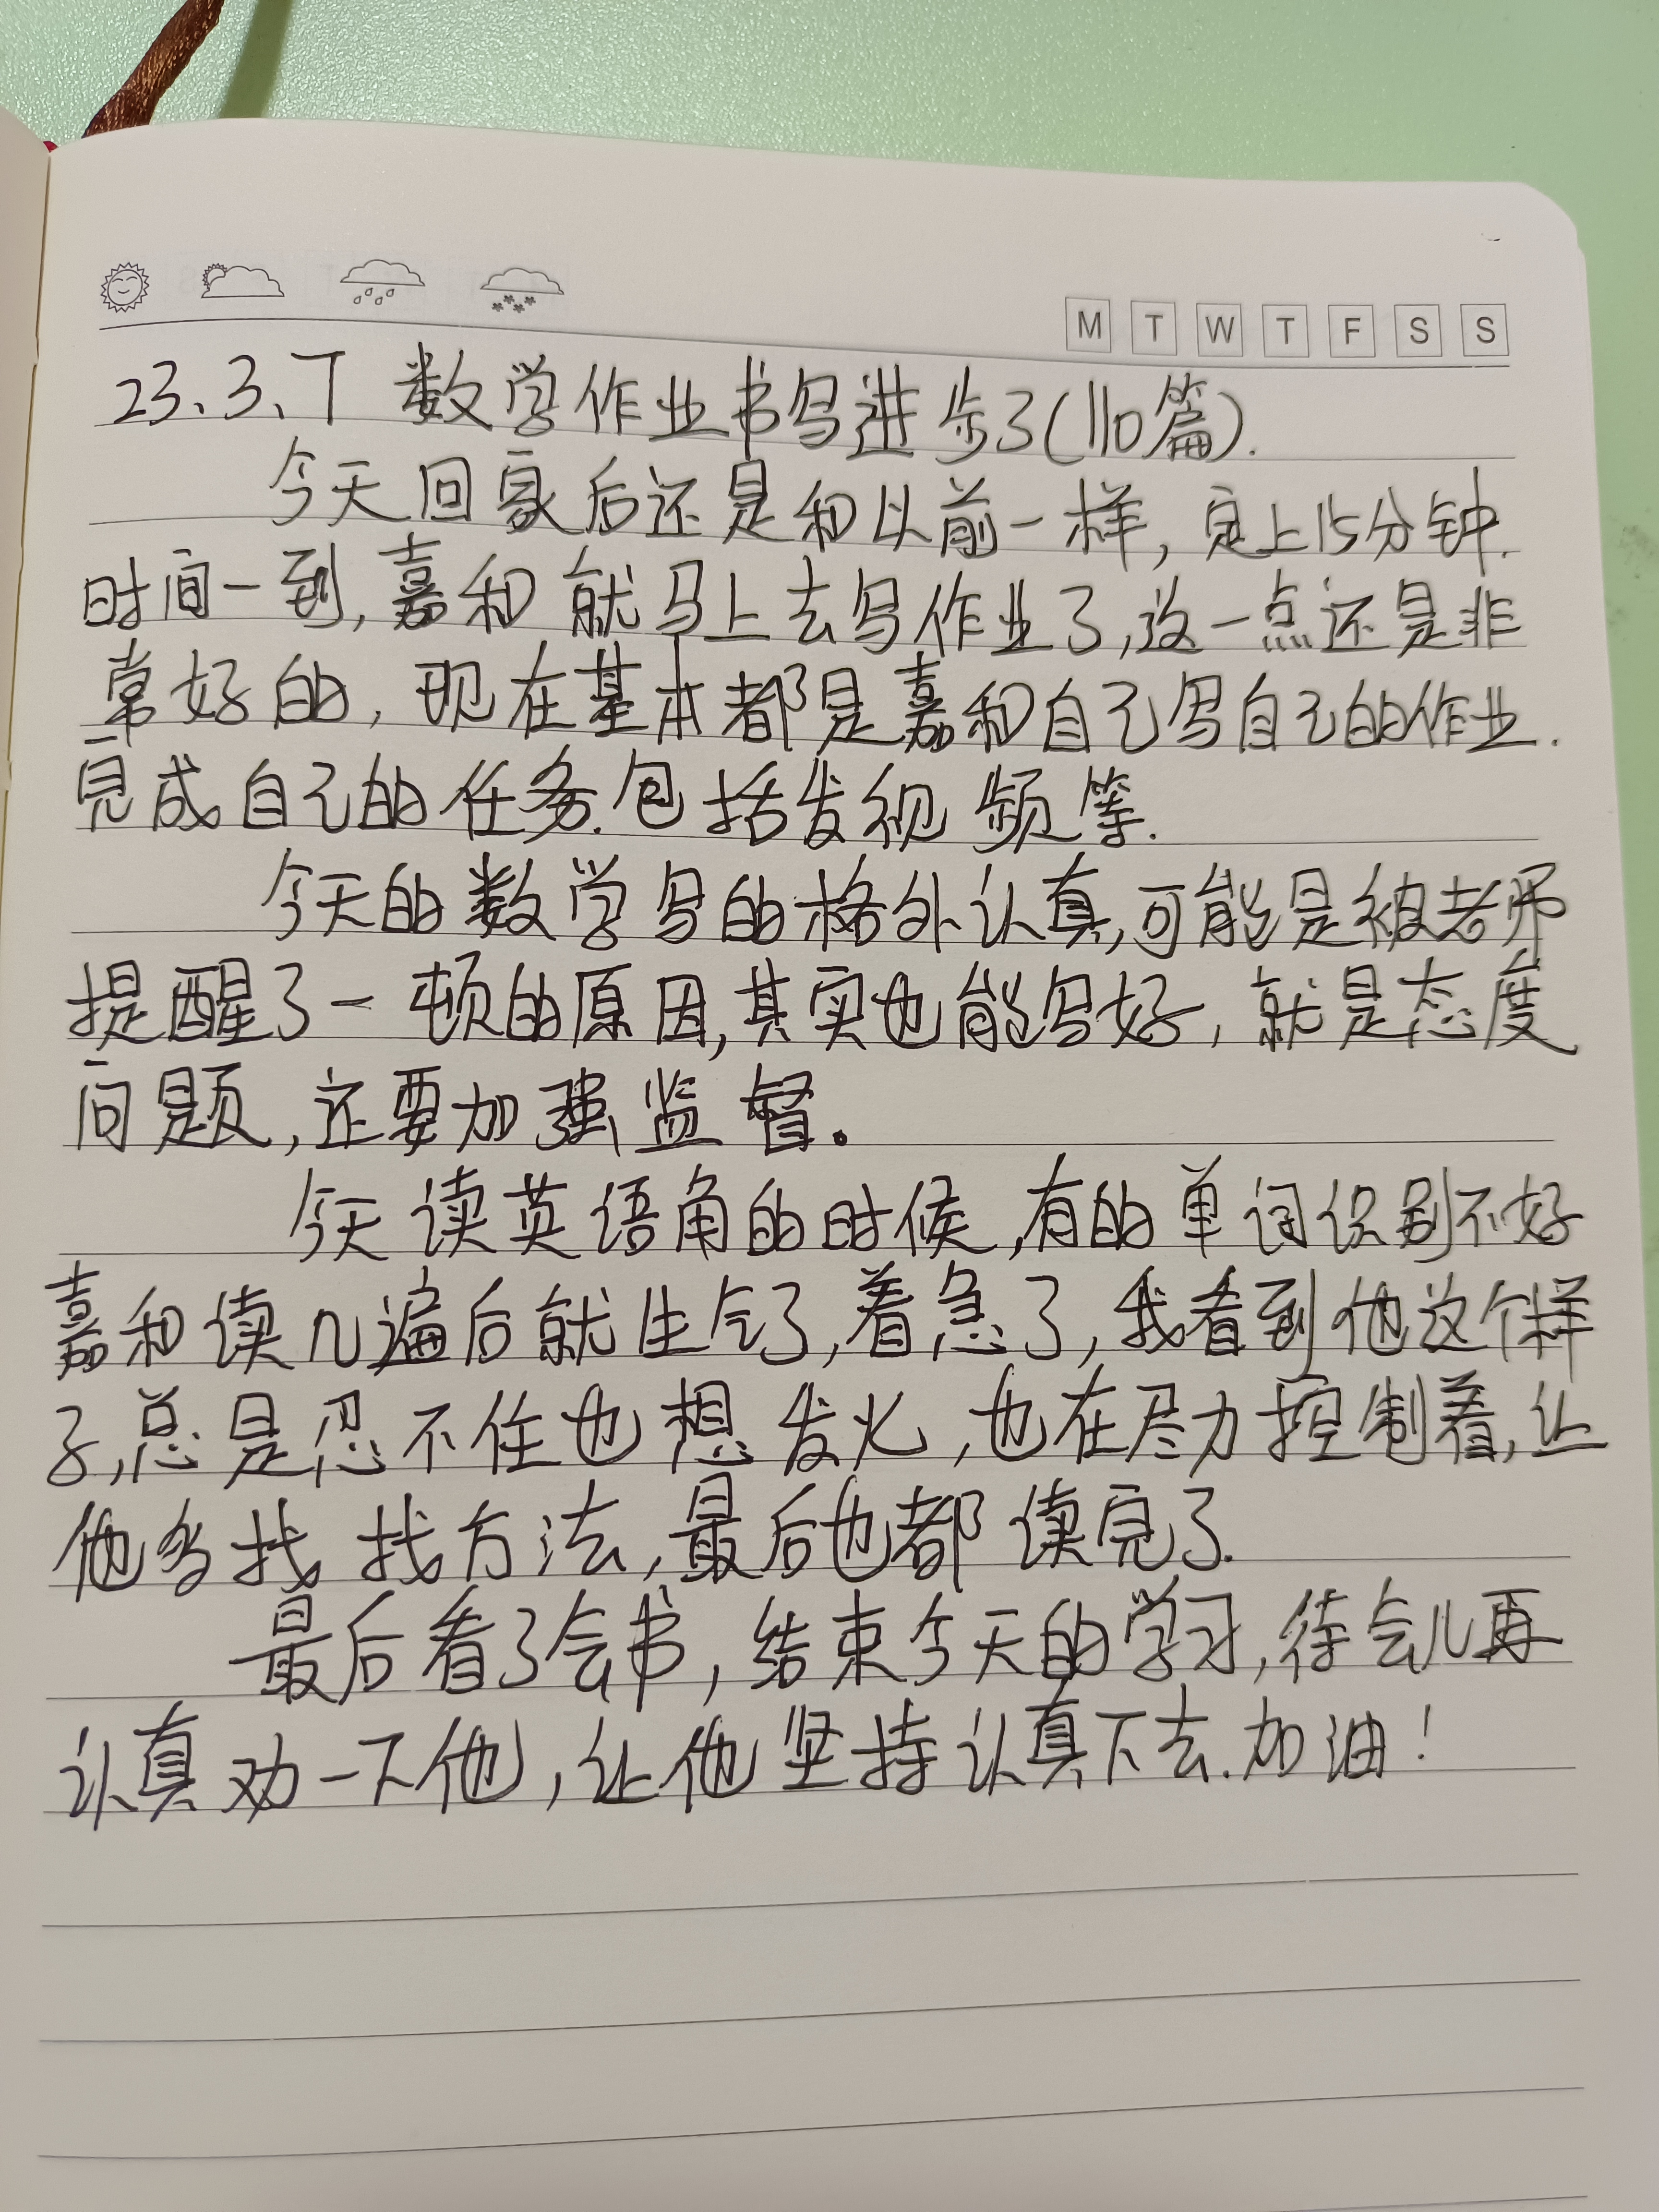 M T W T F S S
23、3、7 数学作业书写进步了(110篇).
今天回家后还是和以前一样,定上15分钟.
时间一到,嘉和就马上去写作业了,这一点还是非
常好的,现在基本都是嘉和自己写自己的作业.
完成自己的任务.包括发视频等.
今天的数学写的格外认真,可能是被老师
提醒了一顿的原因,其实也能写好,就是态度
问题,还要加强监督。
今天读英语角的时候,有的单词识别不好
嘉和读几遍后就生气了,着急了,我看到他这个样
子,总是忍不住也想发火,也在尽力控制着,让
他多找找方法,最后也都读完了.
最后看了会书,结束今天的学习,待会儿再
认真劝一下他,让他坚持认真下去.加油!